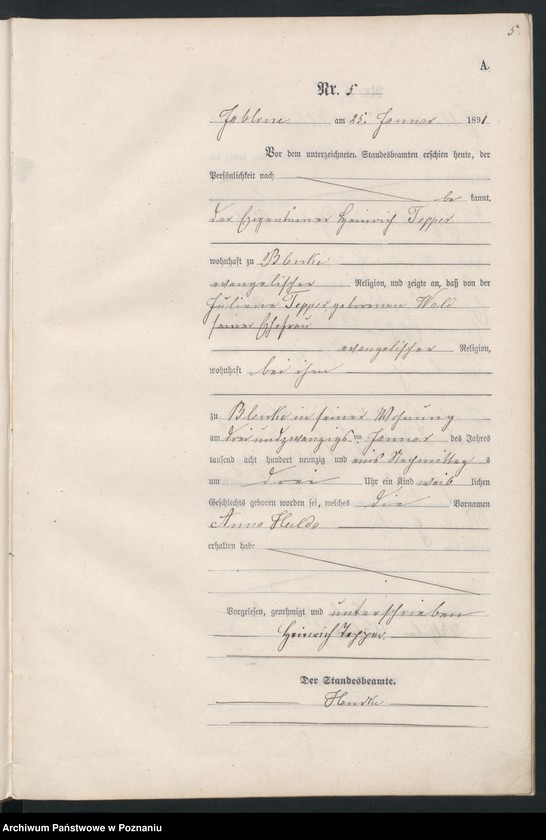 5
A.
Nr. 5
Jablone am 25. Januar 1891
Vor dem unterzeichneten Standesbeamten erschien heute, der
Persönlichkeit nach
be kannt,
der Eigentümer Heinrich Tepper
wohnhaft zu Blenke
evangelischer Religion, und zeigte an, daß von der
Juliane Tepper geborenen Wald
seiner Ehefrau
evangelischer Religion,
wohnhaft bei ihm
zu Blenke in seiner Wohnung
am dreiundzwanzigsten Januar des Jahres
tausend acht hundert neunzig und eins Nachmittags
um drei Uhr ein Kind weib lichen
Geschlechts geboren worden sei, welches die Vornamen
Anna Hulda
erhalten habe
Vorgelesen, genehmigt und unterschrieben
Heinrich Tepper.
Der Standesbeamte.
Archiwum Państwowe w Poznaniu